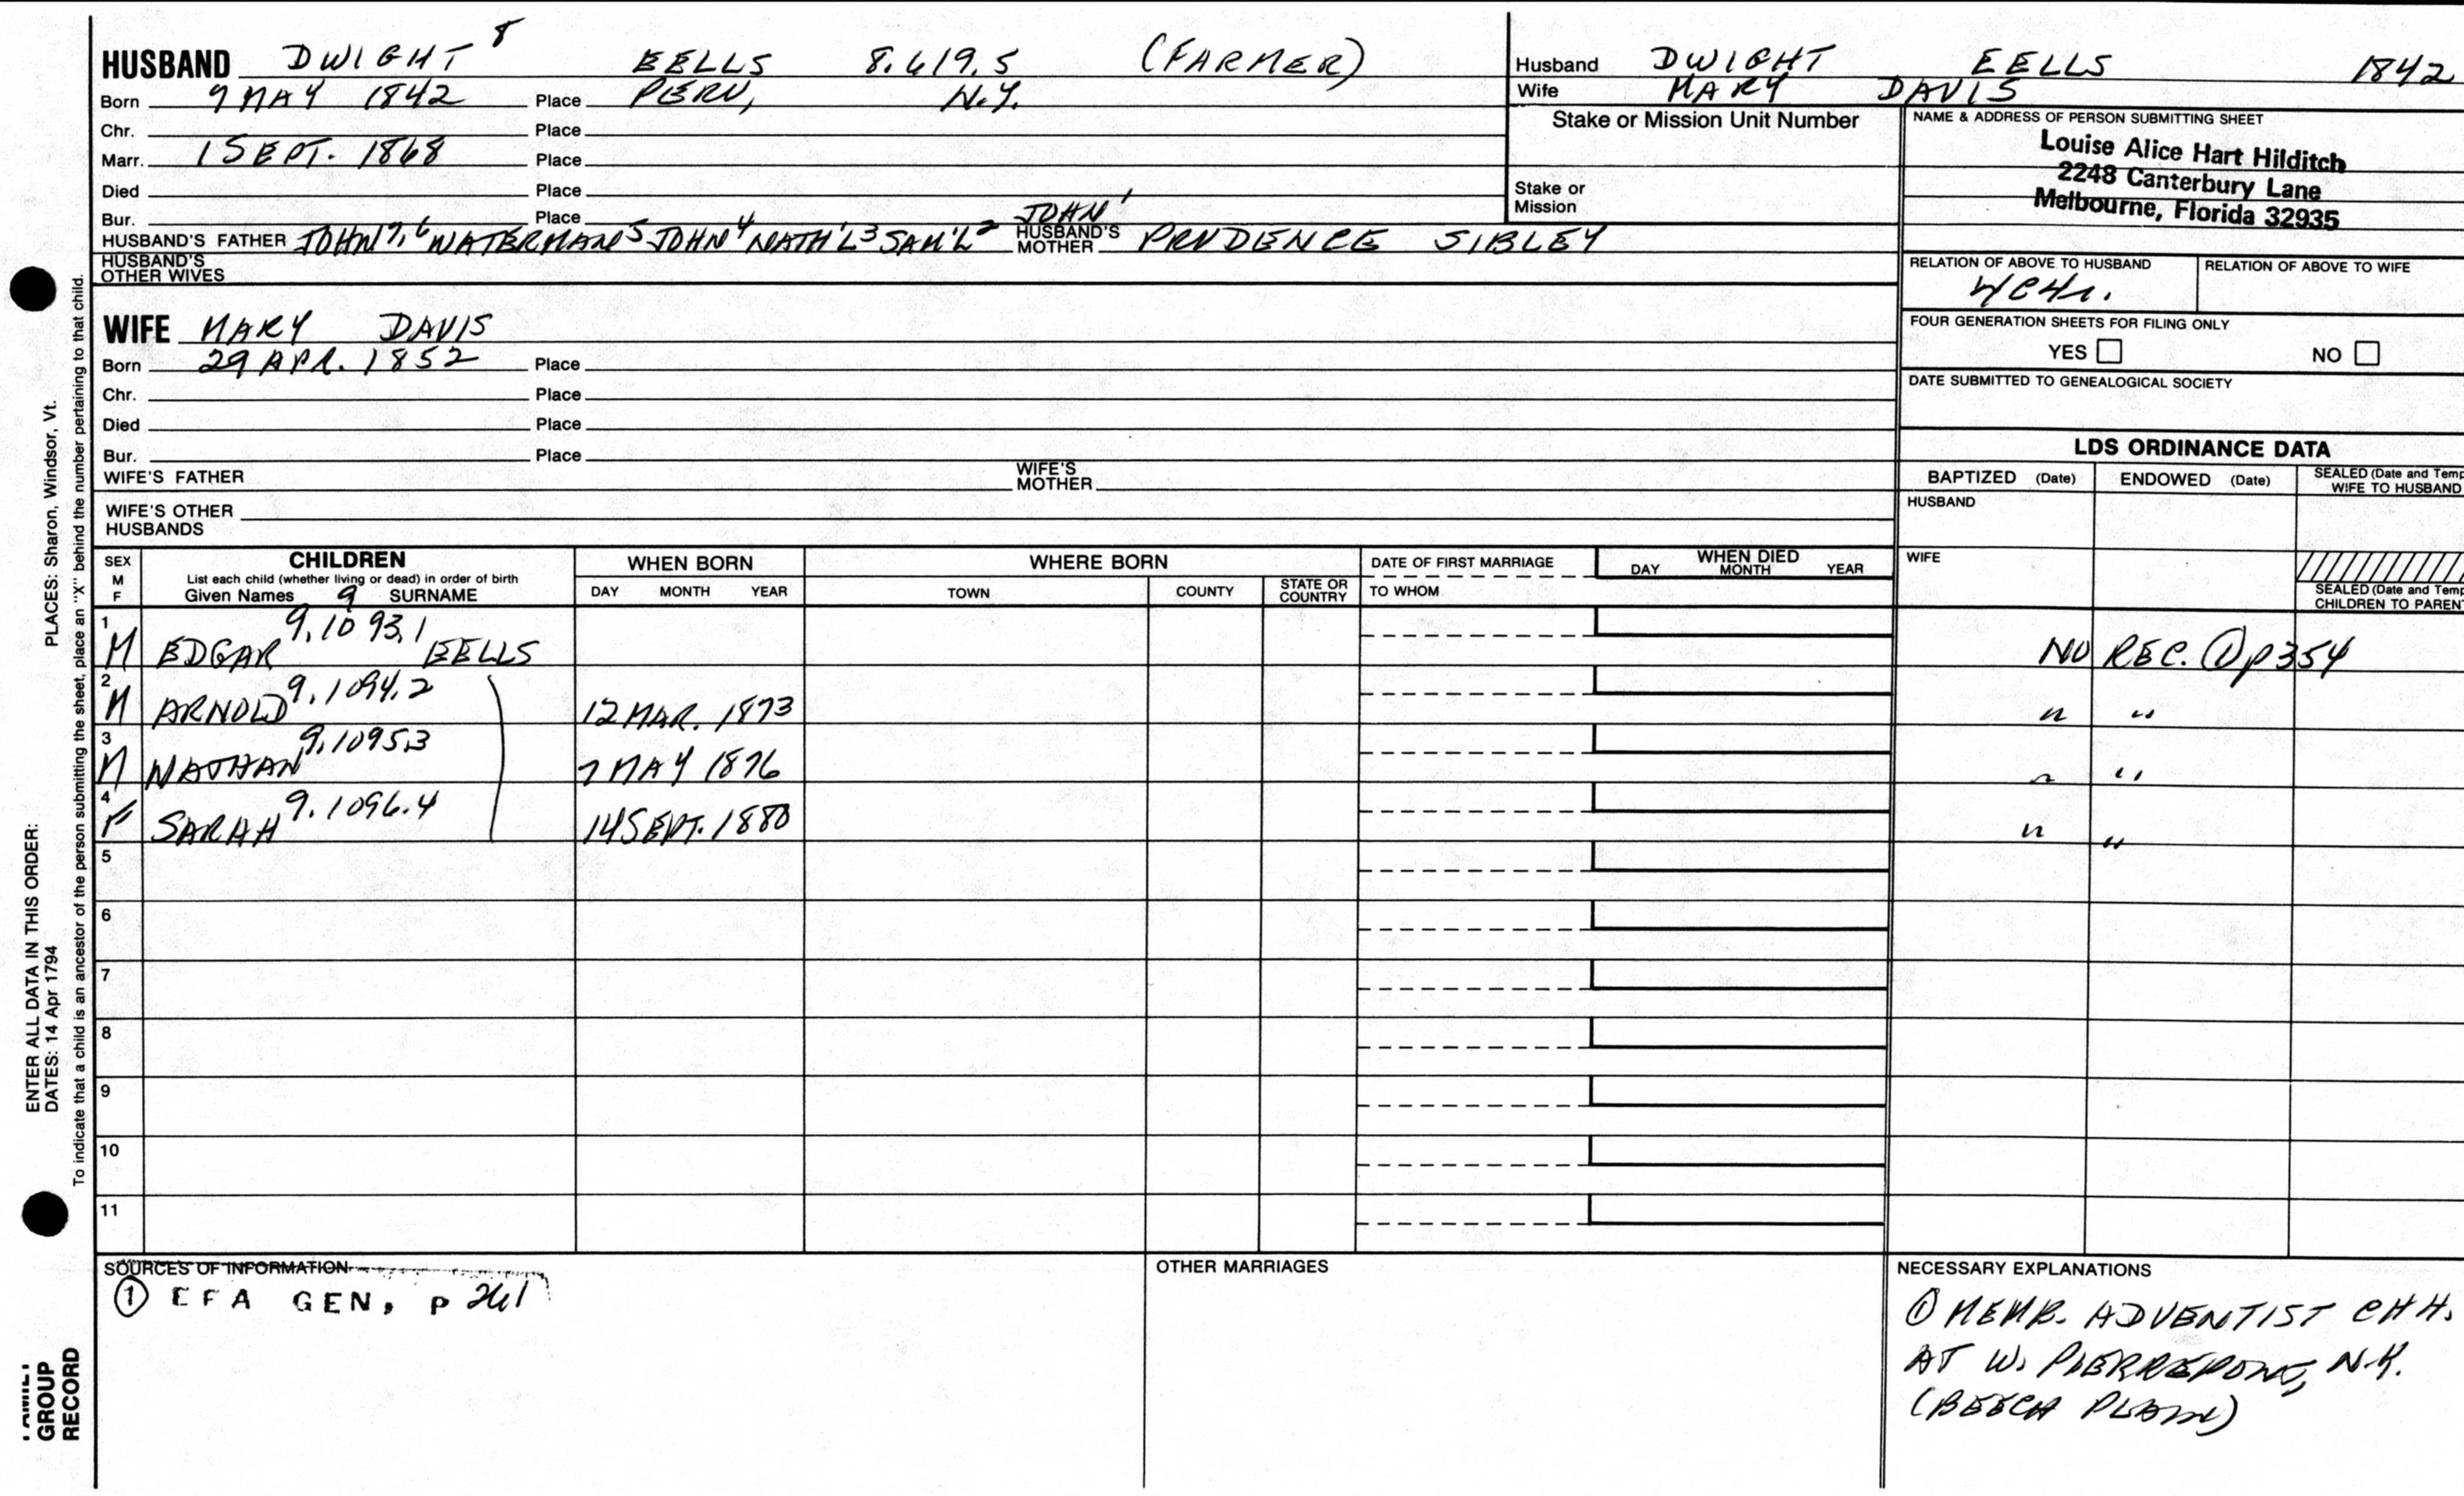 HUSBAND DWIGHT 8 EELLS 8.619.5 (FARMER)
Born 9 MAY 1842 Place PERU, N.Y.
Chr. Place
Marr. 1 SEPT. 1868 Place
Died Place
Bur. Place
HUSBAND'S FATHER JOHN 7, 6 WATERMAN 5 JOHN 4 NATH'L 3 SAM'L 2 JOHN 1 HUSBAND'S MOTHER PRUDENCE SIBLEY
HUSBAND'S OTHER WIVES
Husband DWIGHT EELLS 1842
Wife MARY DAVIS
Stake or Mission Unit Number
Stake or Mission
NAME & ADDRESS OF PERSON SUBMITTING SHEET
Louise Alice Hart Hilditch
2248 Canterbury Lane
Melbourne, Florida 32935
RELATION OF ABOVE TO HUSBAND RELATION OF ABOVE TO WIFE
FOUR GENERATION SHEETS FOR FILING ONLY
YES NO
DATE SUBMITTED TO GENEALOGICAL SOCIETY
WIFE MARY DAVIS
Born 29 APR. 1852 Place
Chr. Place
Died Place
Bur. Place
WIFE'S FATHER WIFE'S MOTHER
WIFE'S OTHER HUSBANDS
LDS ORDINANCE DATA
BAPTIZED (Date) ENDOWED (Date) SEALED (Date and Temp
WIFE TO HUSBAND
HUSBAND
WIFE
SEALED (Date and Temp
CHILDREN TO PAREN
SEX M F CHILDREN WHEN BORN WHERE BORN DATE OF FIRST MARRIAGE WHEN DIED
List each child (whether living or dead) in order of birth
Given Names 9 SURNAME DAY MONTH YEAR TOWN COUNTY STATE OR COUNTRY TO WHOM DAY MONTH YEAR
1 M EDGAR 9.1093.1 EELLS NO REC. ① p354
2 M ARNOLD 9.1094.2 12 MAR. 1873 " "
3 M NATHAN 9.1095.3 7 MAY 1876 " "
4 F SARAH 9.1096.4 14 SEPT. 1880 " "
5
6
7
8
9
10
11
SOURCES OF INFORMATION
① EFA GEN, P 261
OTHER MARRIAGES
NECESSARY EXPLANATIONS
① MEMB. ADVENTIST CHH.
AT W. PIERREPONT, N.Y.
(BEECH PLAIN)
ENTER ALL DATA IN THIS ORDER:
DATES: 14 Apr 1794 PLACES: Sharon, Windsor, Vt.
To indicate that a child is an ancestor of the person submitting the sheet, place an "X" behind the number pertaining to that child.
FAMILY
GROUP
RECORD